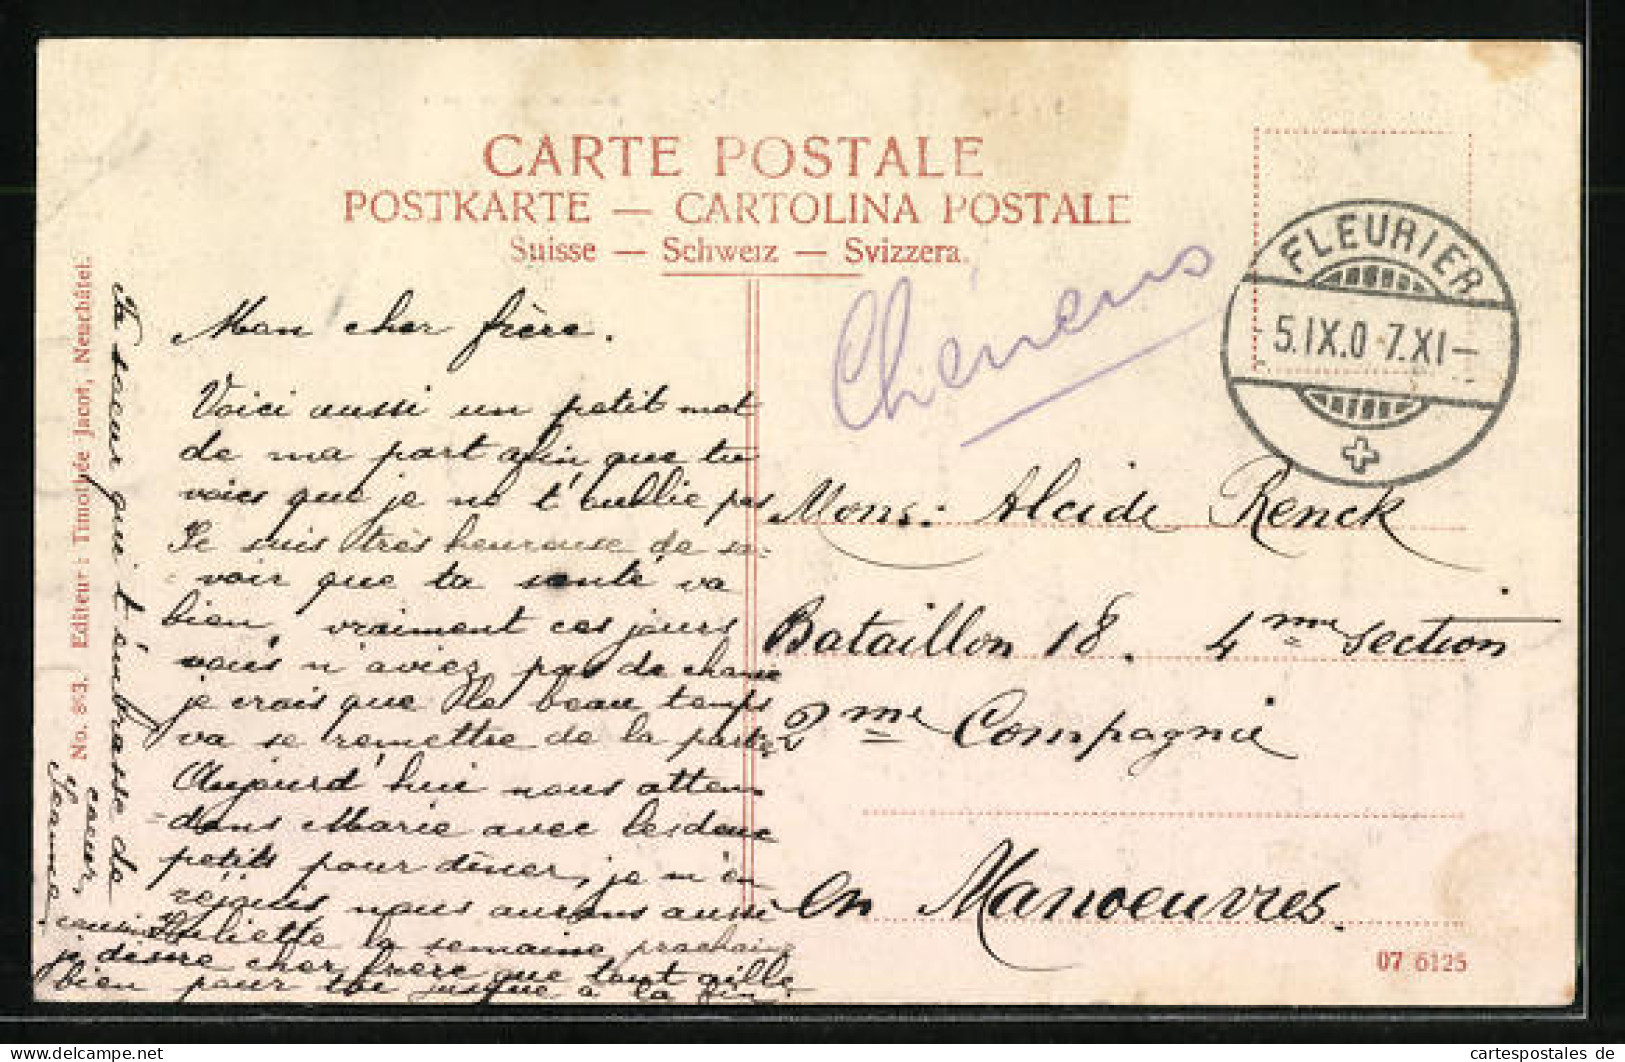 CARTE POSTALE
POSTKARTE — CARTOLINA POSTALE
Suisse — Schweiz — Svizzera.
FLEURIER
5.IX.07.XI—
Mon cher frère.
Voici aussi un petit mot
de ma part afin que tu
voies que je ne t'oublie pas
Je suis très heureuse de sa-
voir que ta santé va
bien, vraiment ces jours
vous n'aviez pas de chance
je crois que le beau temps
va se remettre de la partie
Aujourd'hui nous atten-
dons Marie avec les deux
petits pour dîner, je m'en
réjouis nous aurons aussi
cousine Juliette la semaine prochaine
je désire cher frère que tout aille
bien pour toi jusque à la fin.
Ta soeur qui t'embrasse de
coeur,
Jeanne
Mons: Alcide Renck
Bataillon 18. 4me section
2me Compagnie
en Manoeuvres.
07 6125
No. 893. Editeur: Timothée Jacot, Neuchâtel.
www.cartespostales.eu
cartespostales de